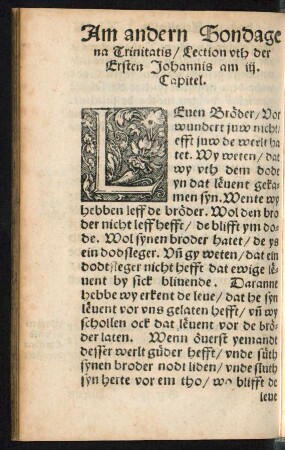 Am andern Sondage
na Trinitatis / Lection vth der
Ersten Johannis am iij.
Capitel.
LEuen Bröder / Vor
wundert juw nicht /
efft juw de werlt ha
tet. Wy weten / dat
wy vth dem dode
yn dat lëuent geka-
men syn. Wente wy
hebben leff de bröder. Wol den bro
der nicht leff hefft / de blifft ym do-
de. Wol synen broder hatet / de ys
ein dodsleger. Vñ gy weten / dat ein
dodtsleger nicht hefft dat ewige lë-
uent by sick bliuende. Daranne
hebbe wy erkent de leue / dat he syn
lëuent vor vns gelaten hefft / vñ wy
schollen ock dat lëuent vor de brö-
der laten. Wenn öuerst yemandt
desser werlt güder hefft / vnde süth
synen broder nodt liden / vnde sluth
syn herte vor em tho / wo blifft de
leue